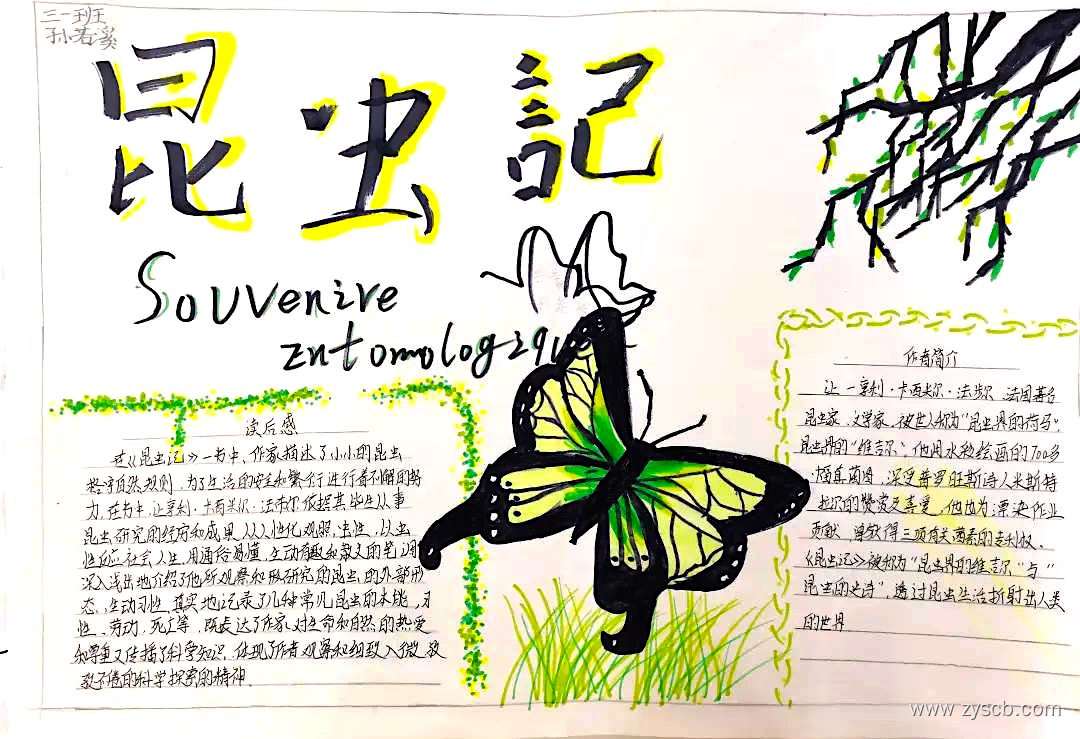 三一班
孙若溪
昆虫記
Souvenire
Entomologiqu
读后感
在《昆虫记》一书中、作家描述了小小的昆虫
恪守自然规则，为了生活的安全和繁衍进行着不懈的努
力.在书中，让·亨利·卡西米尔·法布尔依据其毕生从事
昆虫研究的经历和成果，以人性化观照虫性，以虫
性反应社会人生.用通俗易懂、生动有趣和散文的笔调
深入浅出地介绍了他所观察和所研究的昆虫的外部形
态、生动习性，真实地记录了几种常见昆虫的本能，习
性，劳动，死亡等，既表达了作家对生命和自然的热爱
和尊重又传播了科学知识，体现了作者观察和细致入微孜
孜不倦的科学探索的精神.
作者简介
让—亨利·卡西米尔·法布尔，法国著名
昆虫家，文学家.被世人称为"昆虫界的荷马"
昆虫界的"维吉尔"，他用水彩绘画的700多
幅真菌图，深受普罗旺斯诗人米斯特
拉尔的赞赏及喜爱，他也为漂染作业
贡献，曾获得三项有关茜素的专利权.
《昆虫记》被称为"昆虫界的维吉尔"与"
昆虫的史诗"，透过昆虫生活折射出人类
的世界
www.zyscb.com